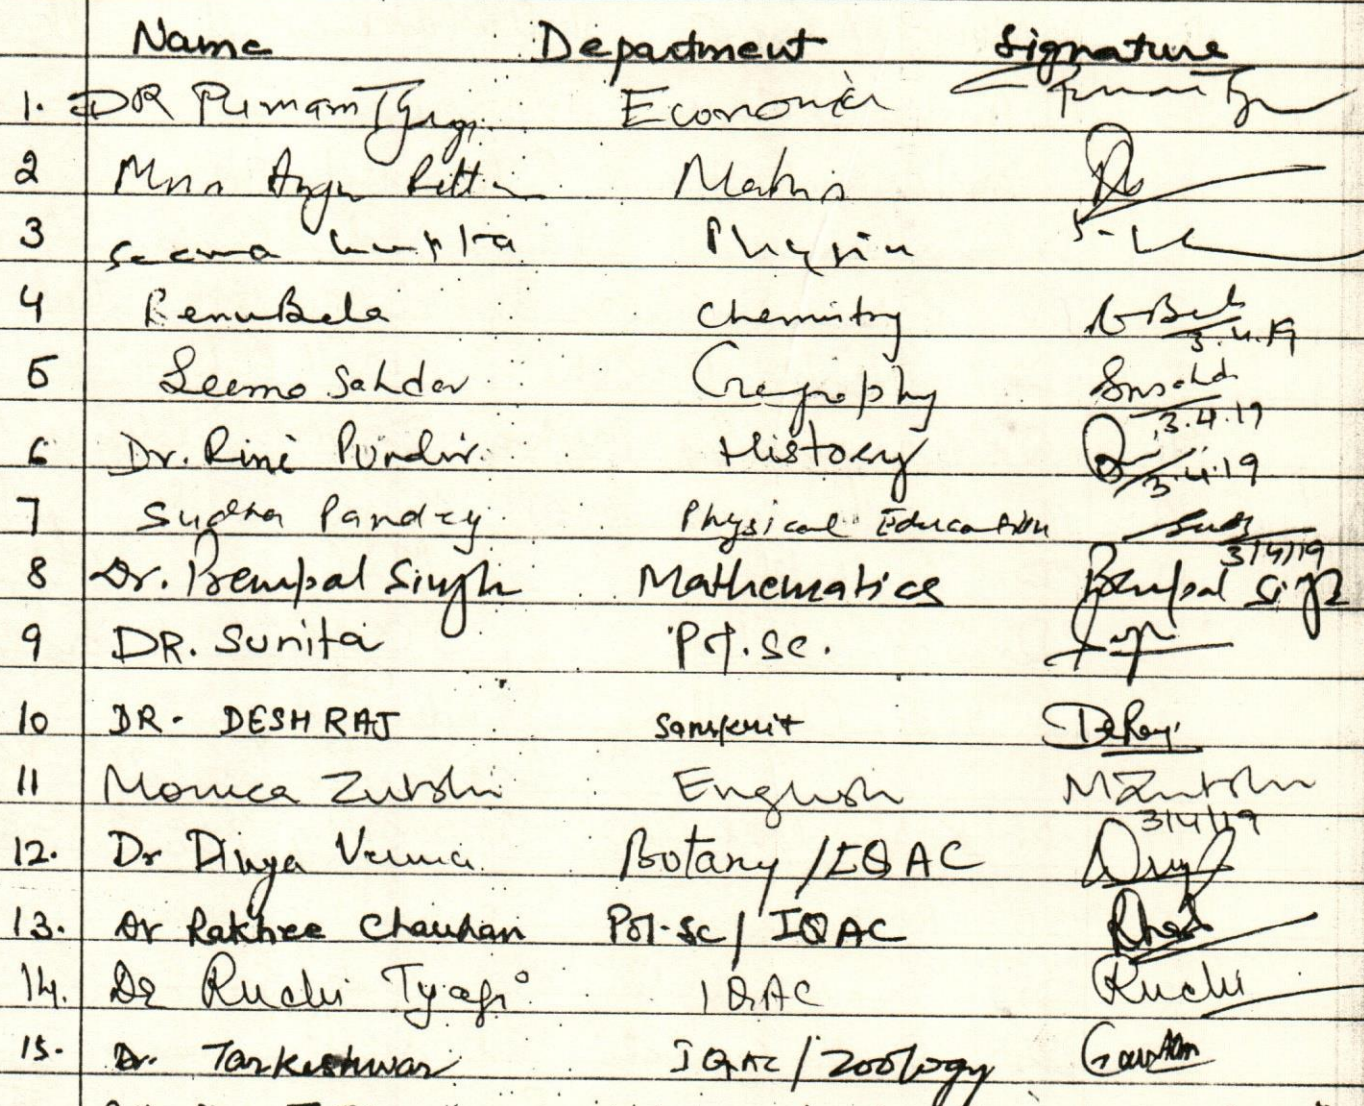 Name Department Signature
1. DR Punam Tyagi Economics
2 Mrs Anju Maths
3 Seema Gupta Physics
4 Renu Bala Chemistry
3.4.19
5 Seema Sahdev Geography
3.4.19
6 Dr. Rini Pundir History
3.4.19
7 Sudha Pandey Physical Education
3/4/19
8 Dr. Prempal Singh Mathematics Prempal Singh
9 DR. Sunita Pol.Sc.
10 DR. DESHRAJ Sanskrit DeRaj
11 Monica Zutshi English MZutshi
3/4/19
12. Dr Divya Verma Botany / IQAC
13. Dr Rakhee Chauhan Pol.Sc / IQAC
14. Dr Ruchi Tyagi IQAC Ruchi
15. Dr. Tarkeshwar IQAC / Zoology Gautam